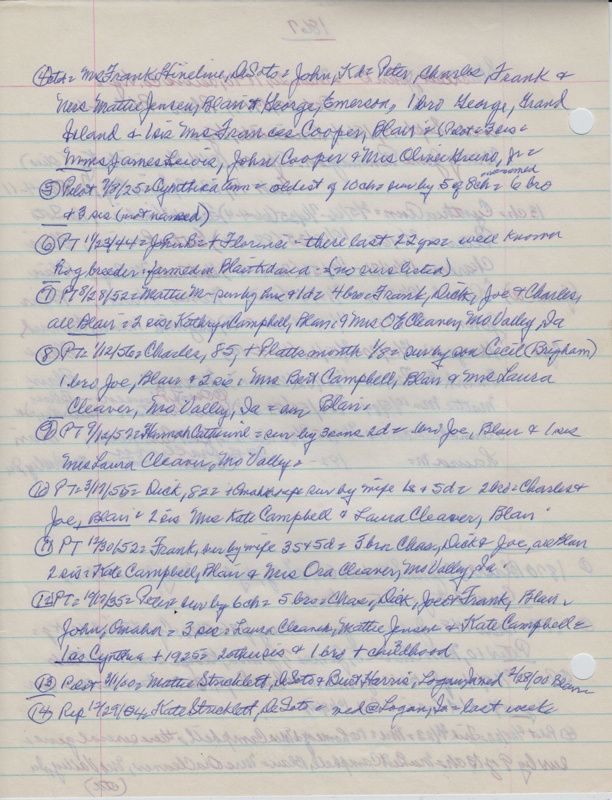 1867
④ ctd = Mrs Frank Hineline, DeSoto & John, Kd = Peter, Charles, Frank &
Mrs Mattie Jensen, Blair & George, Emerson, 1 bro George, Grand
Island & 1 sis Mrs Frances Cooper, Blair = (Pilot = 3 sis =
Mmes James Lewis, John Cooper & Mrs Oliver, Jr =
unnamed
⑤ Pilot 7/8/25 = Cynthia Ann = oldest of 10 ch = sur by 5 of 8 ch = 6 bro
+ 3 sis (not named)
⑥ PT 11/23/44 = John B = + Florence - there last 22 yrs = well known
hog breeder = farmed in Blair + Idaho - (no survs listed)
⑦ PT 8/28/52 = Mattie M - sur by & 1d = 4 bro = Frank, Dick, Joe & Charles,
all Blair = 2 sis = Kathryn Campbell, Blair & Mrs O E Cleaver, Mo Valley, Ia
⑧ PT = 1/12/56 = Charles, 85, + Plattsmouth 1/8 = sur by son Cecil (Brigham)
1 bro Joe, Blair & 2 sis: Mrs Bert Campbell, Blair & Mrs Laura
Cleaver, Mo Valley, Ia = Blair.
⑨ PT 9/12/57 = Hannah Catherine = sur by 3 sons 2d = 1 bro Joe, Blair & 1 sis
Mrs Laura Cleaver, Mo Valley =
⑩ PT = 3/17/55 = Dick, 82 = + Omaha sur by wife & 5d = 2 bro = Charles &
Joe, Blair & 2 sis Mrs Kate Campbell & Laura Cleaver, Blair
⑪ PT 12/30/52 = Frank, sur by wife 3S & 5d = 3 bro Chas, Dick & Joe, all Blair
2 sis = Kate Campbell, Blair & Mrs Ora Cleaver, Mo Valley, Ia
⑫ PT = 12/12/35 = Peter sur by 6 ch = 5 bro = Chas, Dick, Joe & Frank, Blair,
John, Omaha = 3 sis = Laura Cleaver, Mattie Jensen & Kate Campbell =
Cynthia + 1925 = 2 other sis & 1 bro + childhood
⑬ Pilot 3/1/60 = Mattie Stricklett, DeSoto & Burt Harris, Logan, Ia med 2/28/00
⑭ Rep 12/29/04 = Kate Stricklett, DeSoto = med @ Logan, Ia = last week